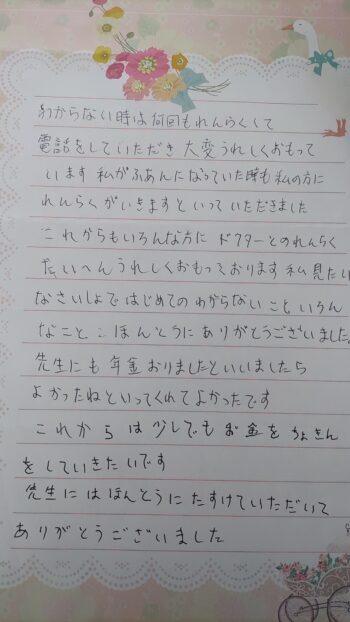 わからない時は何回もれんらくして
電話をしていただき大変うれしくおもって
います 私がふあんになっていた時も私の方に
れんらくがいきますといっていただきました
これからもいろんな方に ドクターとのれんらく
たいへんうれしくおもっております 私見たい
なさいしょではじめてのわからないこといろん
なこと、ほんとうにありがとうございました。
先生にも年金おりましたといいましたら
よかったねといってくれてよかったです
これからは少しでもお金をちょきん
をしていきたいです
先生にはほんとうにたすけていただいて
ありがとうございました